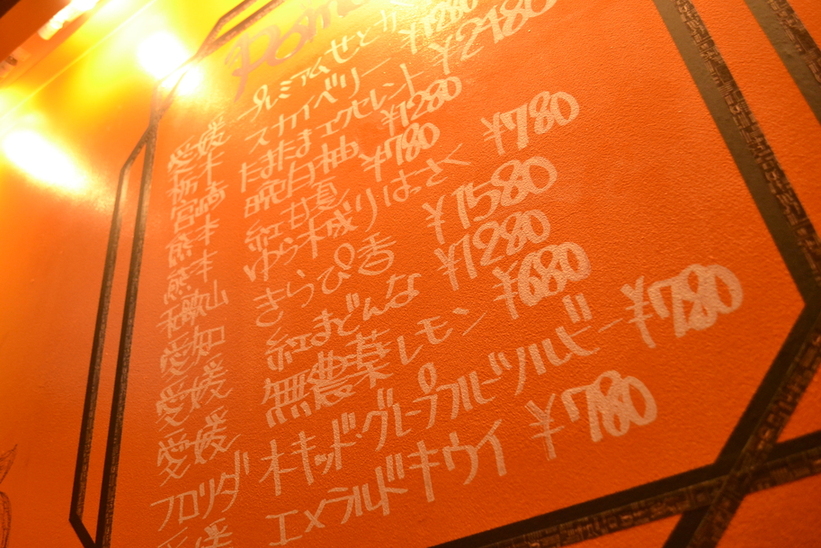 Pom
愛媛 プレミアムせとか ¥1280
栃木 スカイベリー ¥2480
宮崎 たまたまエクセレント
熊本 晩白柚 ¥1280
熊本 紅甘夏 ¥780
和歌山 ゆら木成りはっさく ¥780
愛知 きらぴ香 ¥1580
愛媛 紅まどんな ¥1280
愛媛 無農薬レモン ¥680
フロリダ オーキッド・グレープフルーツルビー ¥780
愛媛 エメラルドキウイ ¥780